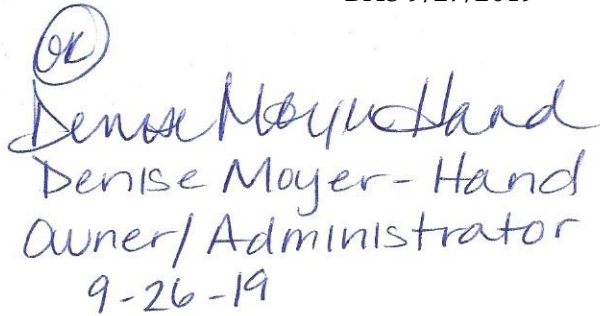 9/27/2019
OK
Denise Moyer-Hand
Denise Moyer-Hand
Owner/Administrator
9-26-19